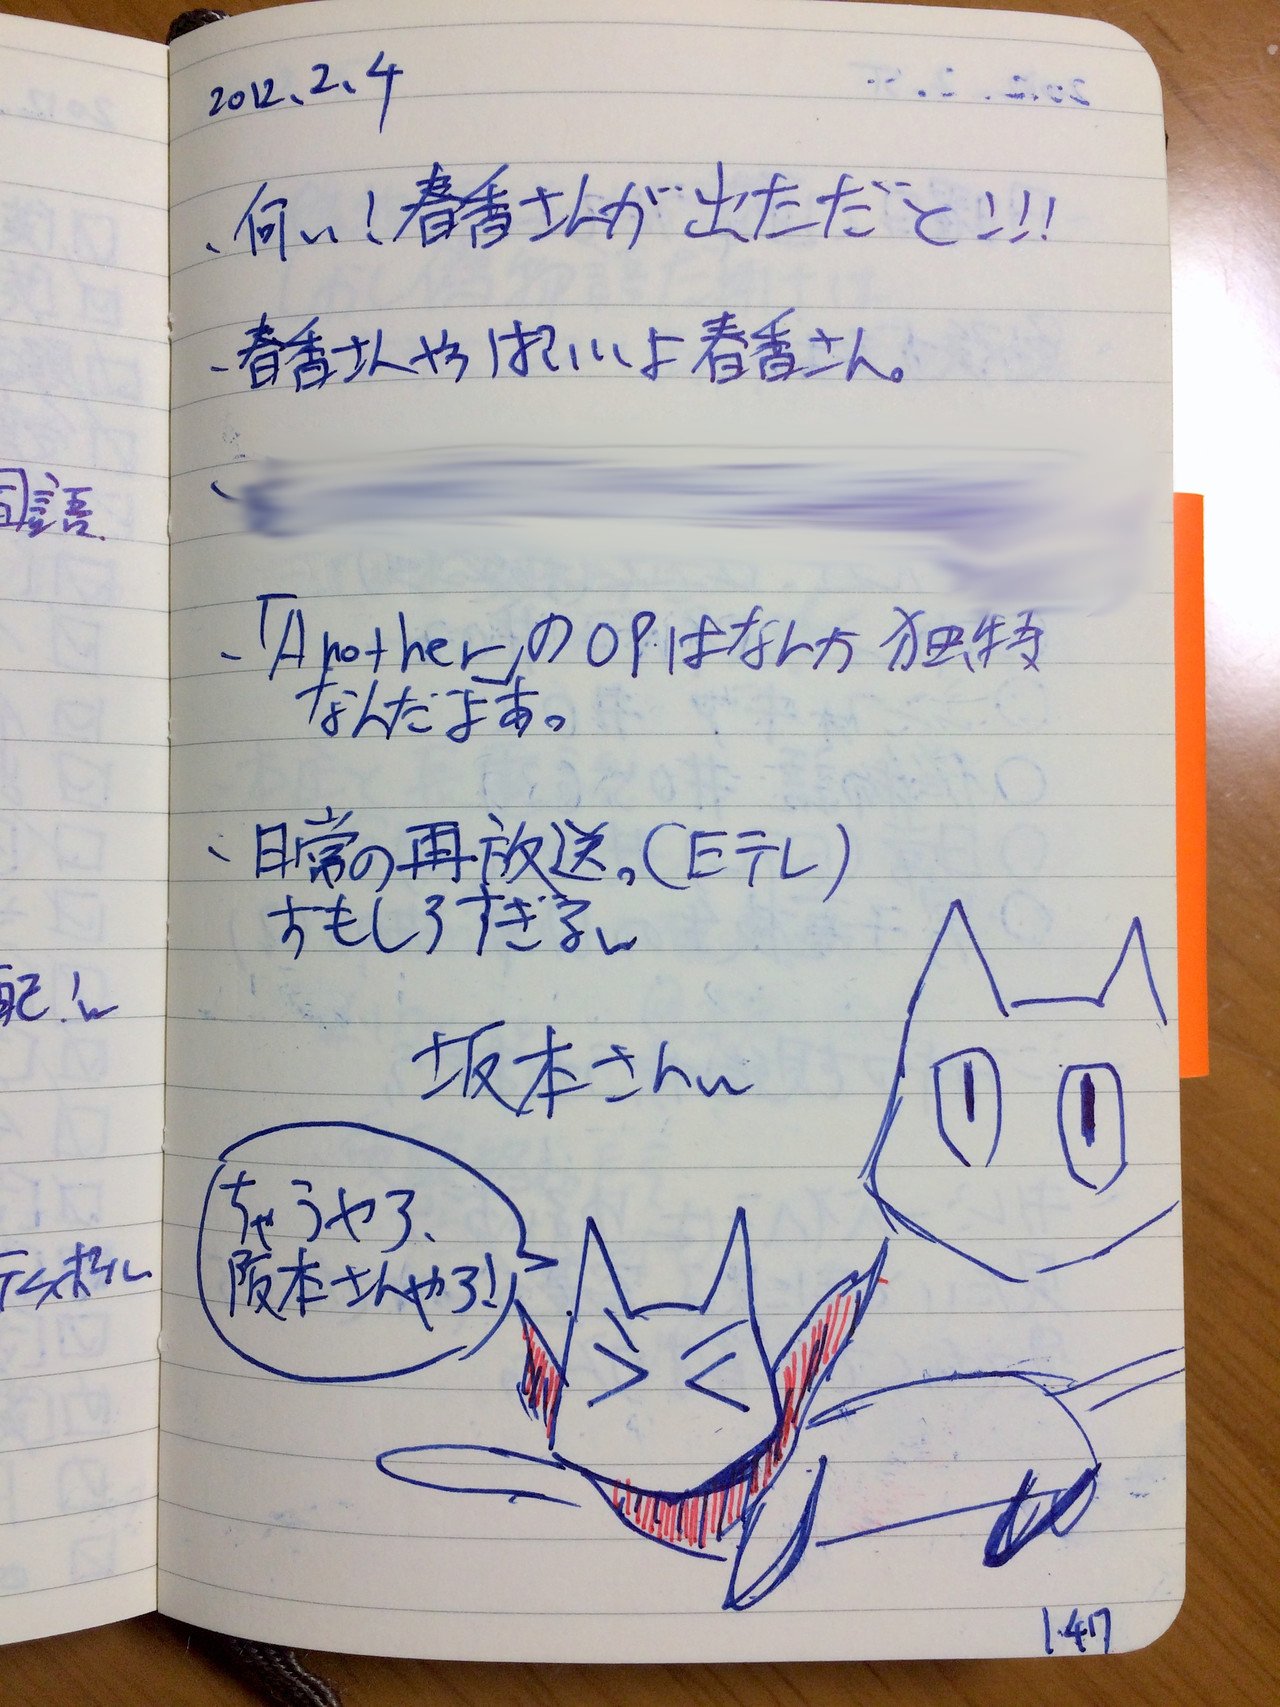 2012.2.4
、何ぃ！春香さんが出ただと!!!
、春香さんやっぱいいよ春香さん。
、
、「Another」のOPはなんか独特
なんだよなあ。
、日常の再放送。(Eテレ)
おもしろすぎるw
坂本さんw
ちゃうやろ、
阪本さんやろ!
147
国語
配!w